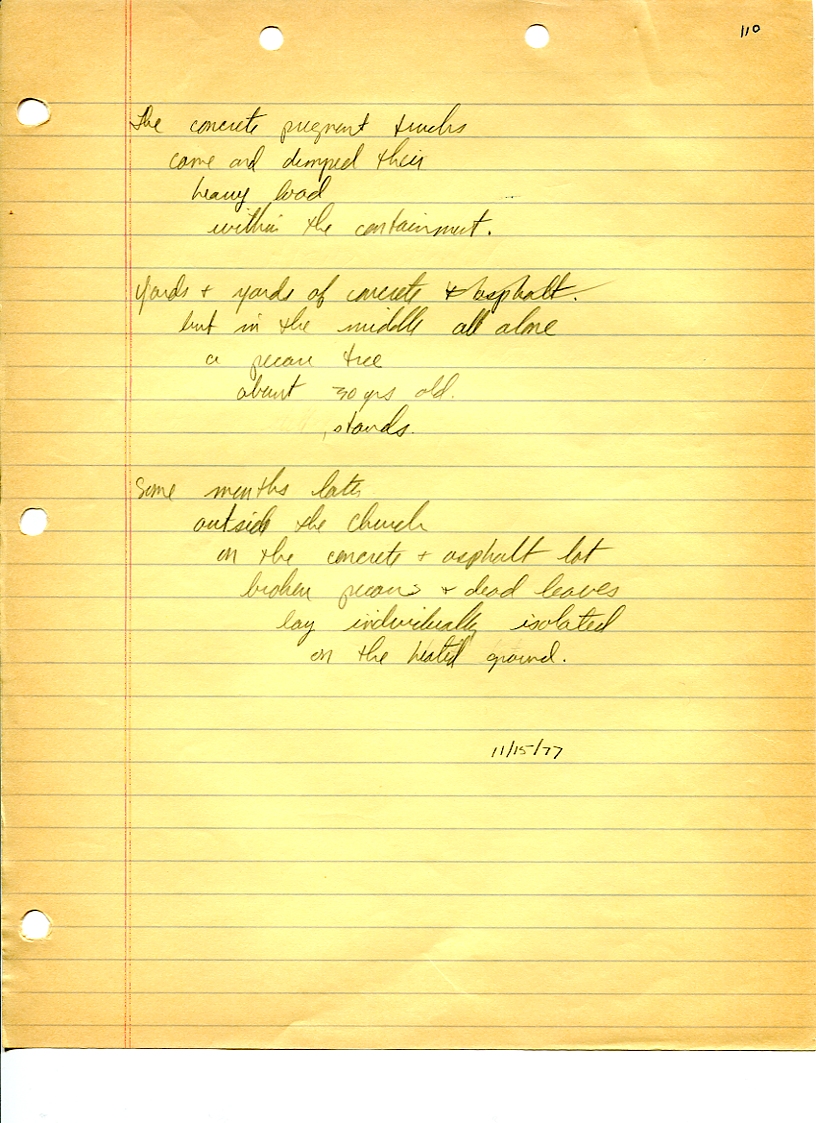 110
The concrete pregnant trucks
come and dumped their
heavy load
within the containment.
Yards + yards of concrete + asphalt.
but in the middle all alone
a pecan tree
about 30 yrs old.
stands.
Some months later
outside the church
on the concrete + asphalt lot
broken pecans + dead leaves
lay individually isolated
on the heated ground.
11/15/77